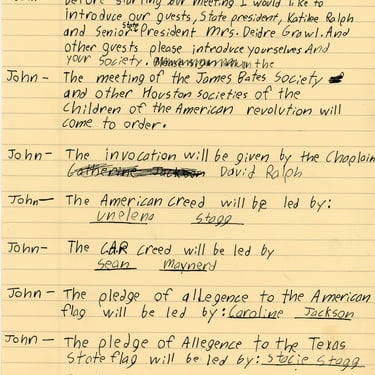 before starting our meeting I would like to
introduce our guests, State president, Katilee Ralph
and Senior State President Mrs. Deidre Grawl. And
other guests please introduce yourselves And
your society. in the
John - The meeting of the James Bates Society
and other Houston societies of the
Children of the American revolution will
come to order.
John - The invocation will be given by the Chaplain
Catherine Jackson David Ralph
John - The American Creed will be led by:
unelena Stagg
John - The CAR creed will be led by
Sean Maynerd
John - The pledge of allegence to the American
flag will be led by: Caroline Jackson
John - The pledge of Allegence to the Texas
State flag will be led by: Stacie Stagg